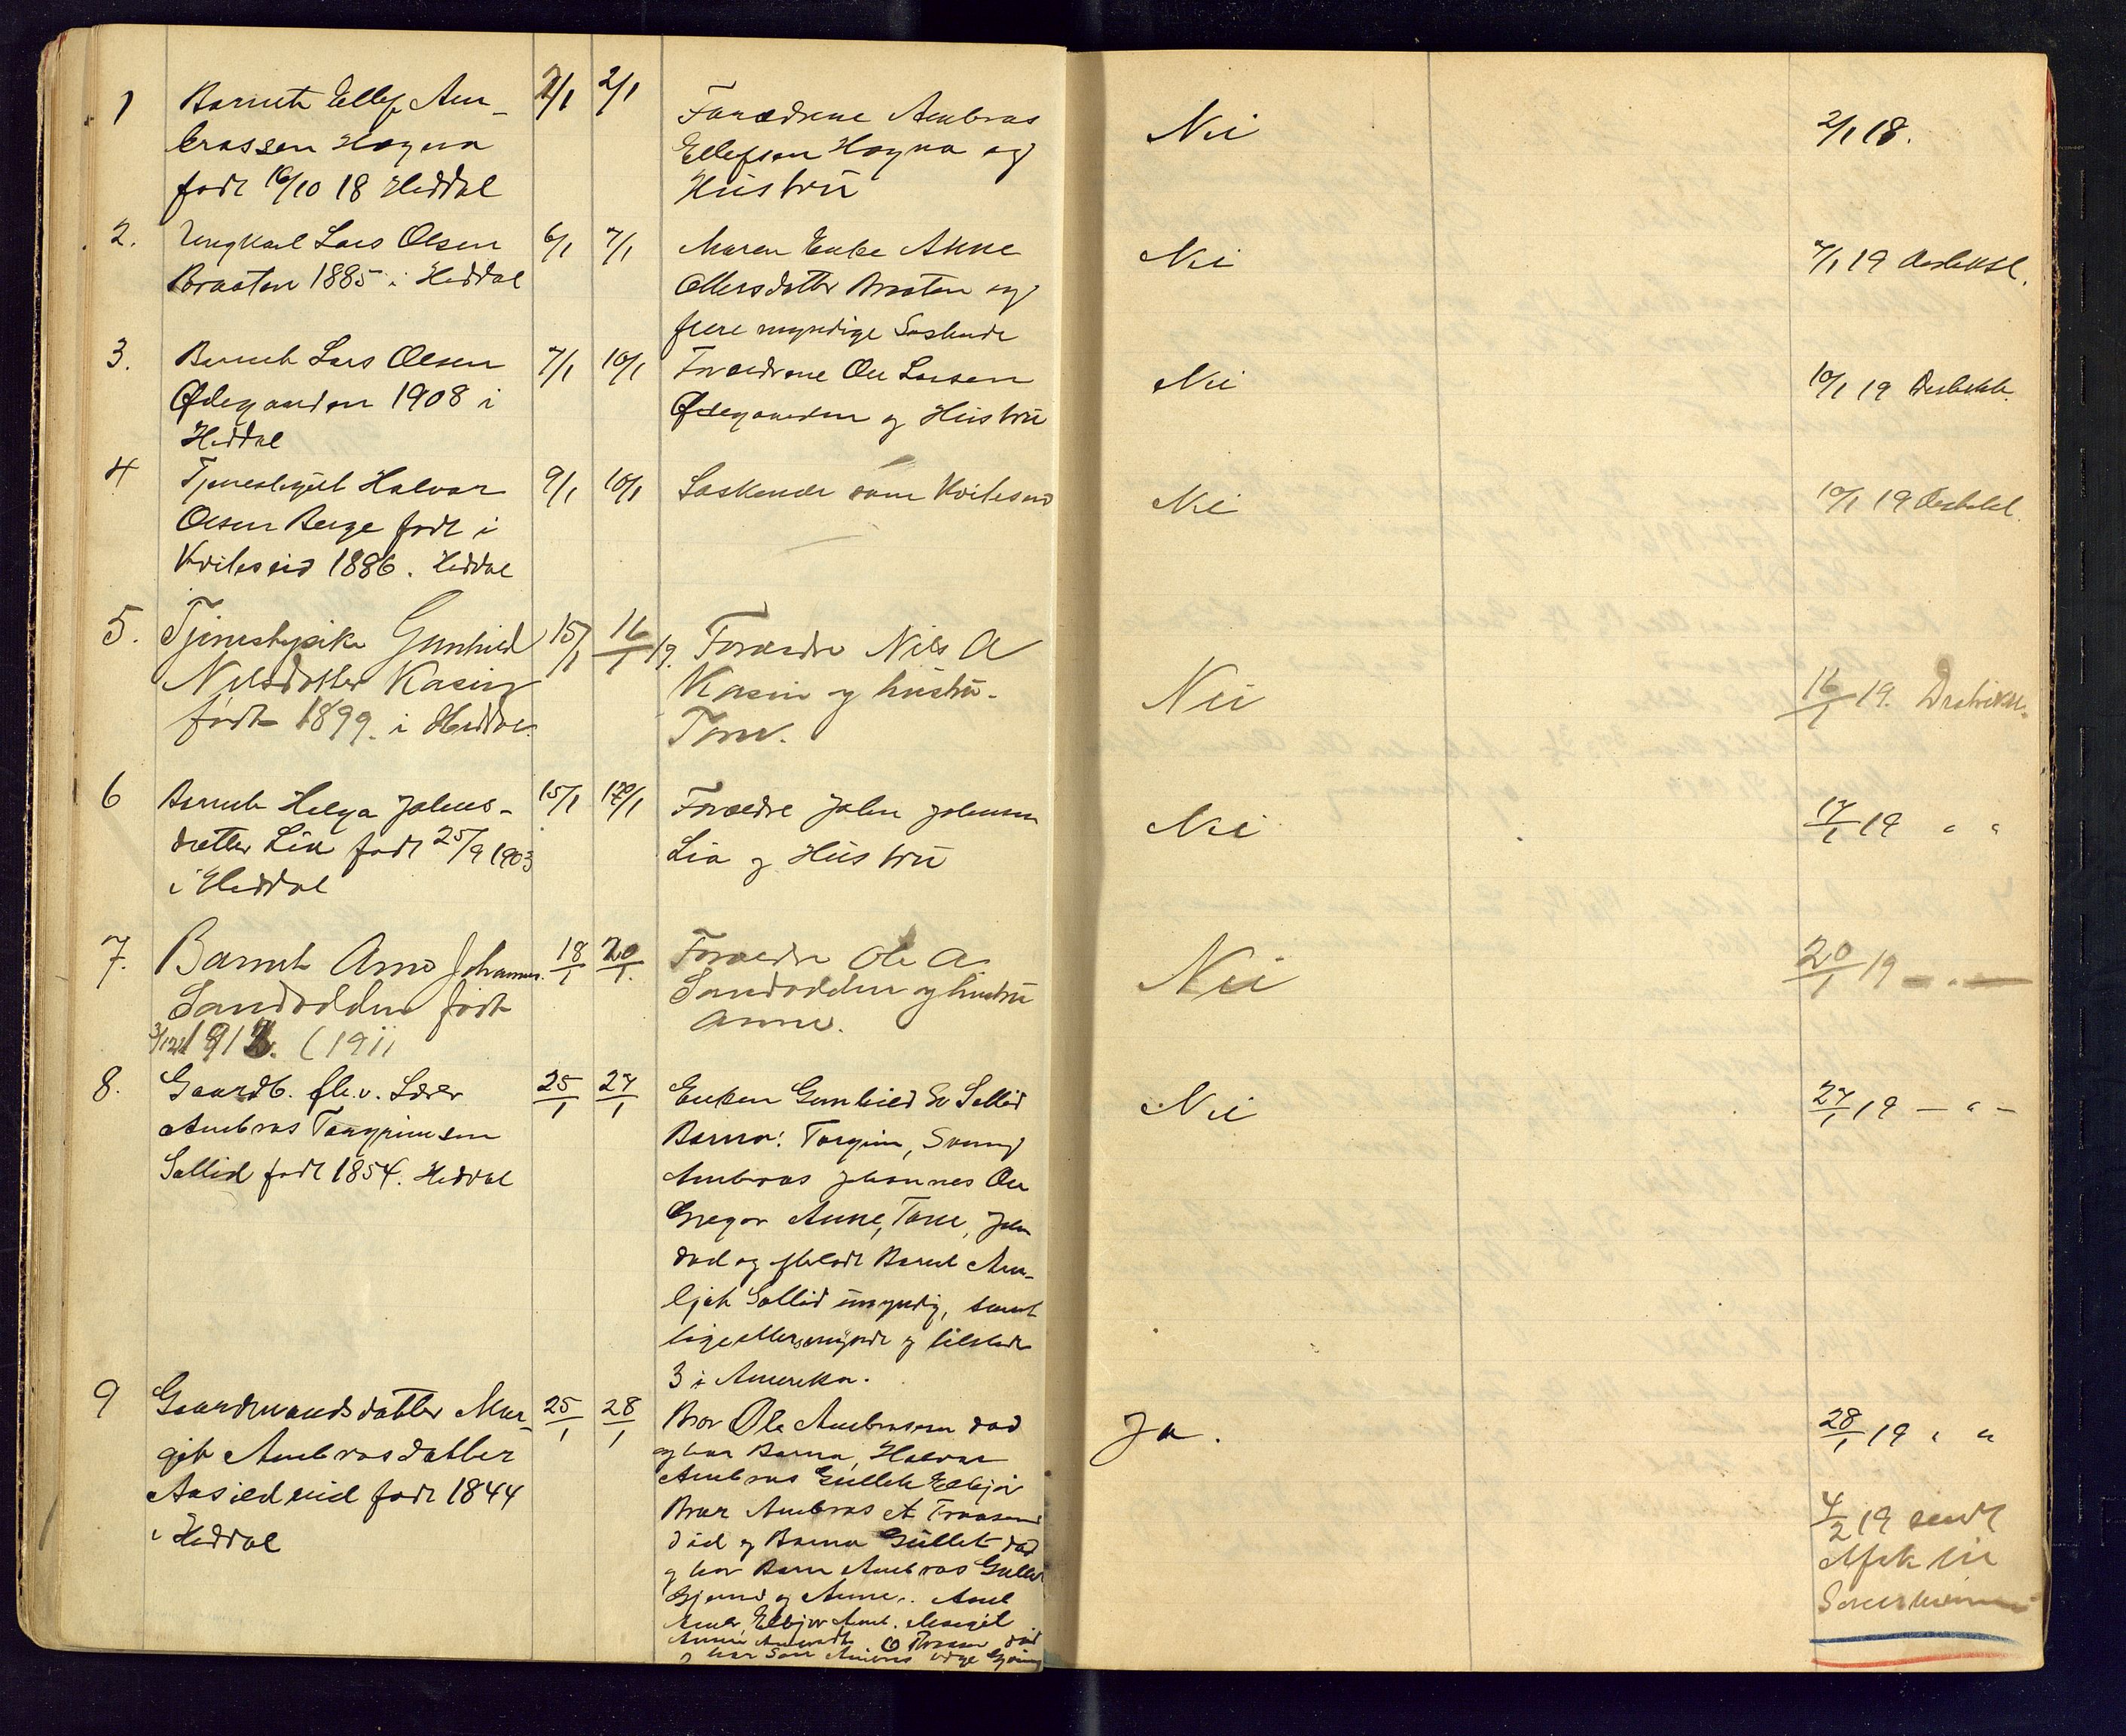 1 Barnet Ellef Am-
brossen Høgna
født 16/10 18 Heddal
2/1 2/1
Forældrene Ambros
Ellefsen Høgna og
Hustru
Nei
2/1 18.
2. Ungkarl Lars Olsen
Braaten 1885 i Heddal
6/1 7/1
Moren Enke Anne
Olersdatter Braaten og
flere myndige Søskende
Nei
7/1 19
3. Barnet Lars Olsen
Ødegaarden 1908 i
Heddal
7/1 10/1
Forældrene Ole Larsen
Ødegaarden og Hustru
Nei
10/1 19
4 Tjenestegut Halvor
Olsen Berge født i
Kviteseid 1886. Heddal
9/1 10/1
Søskende som Kviteseid
Nei
10/1 19
5. Tjenestepike Gunhild
Nilsdatter Kasin
født 1899. i Heddal
15/1 16/1 19.
Forældre Nils A
Kasin og hustru
Tone.
Nei
16/1 19.
6 Barnet Helga Johns-
datter Lia født 25/9 1903
i Heddal
15/1 17/1
Forældre John Johnsen
Lia og Hustru
Nei
17/1 19 " "
7. Barnet Arne Johannes
Sandodden født
3/12 1912. (1911
18/1 20/1.
Forældre Ole A.
Sandodden og hustru
Anne.
Nei
20/1 19 - " -
8. Gaardb. fhv. Lærer
Ambros Torgrimsen
Sollid født 1854. Heddal
25/1 27/1
Enken Gunhild Sollid
Barna: Torgrim, Svenung
Ambros Johannes Ole
Gregor Anne, Tone, John
død og efterladt Barnet Am-
ljot Sollid umyndig, samt
lige ellers myndige og tilstede
3 i Amerika.
Nei
27/1 19 - " -
9 Gaardmandsdatter Mar-
git Ambrosdatter
Aasildeid født 1844
i Heddal
25/1 28/1
Bror Ole Ambrosen død
og har Barna, Halvor
Ambros Gullek Elbjør
Bror Ambros A
død og Barna Gullek død
og har Barn Ambros Gullek
Gjermund og Anne.
Ja.
28/1 19 " "
4/2 19 sendt